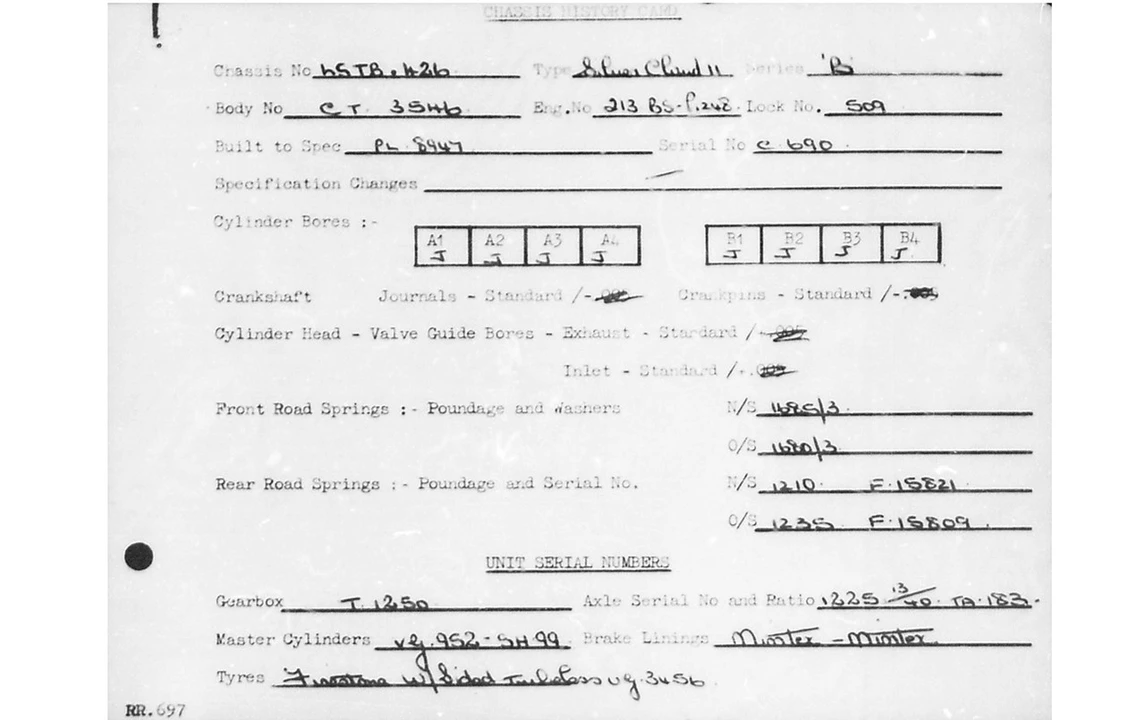 CHASSIS HISTORY CARD
Chassis No LSTB.426 Type Silver Cloud II Series 'B'
Body No C T. 3546 Eng.No 213 BS- P.248. Lock No. 509
Built to Spec PL. 8947 Serial No C. 690.
Specification Changes
Cylinder Bores :-
A1 A2 A3 A4 B1 B2 B3 B4
J J J J J J J J
Crankshaft Journals - Standard /- Crankpins - Standard /-
Cylinder Head - Valve Guide Bores - Exhaust - Standard /
Inlet - Standard /
Front Road Springs :- Poundage and Washers N/S 1685/3.
O/S 1680/3.
Rear Road Springs :- Poundage and Serial No. N/S 1210. F.15821
O/S 1235 F.15809.
UNIT SERIAL NUMBERS
Gearbox T. 1250 Axle Serial No and Ratio 1225 13/40. TA.183.
Master Cylinders VG.952-SH 99. Brake Linings Mintex - Mintex.
Tyres Firestone W/Sided Tubeless VG.3456
RR.697